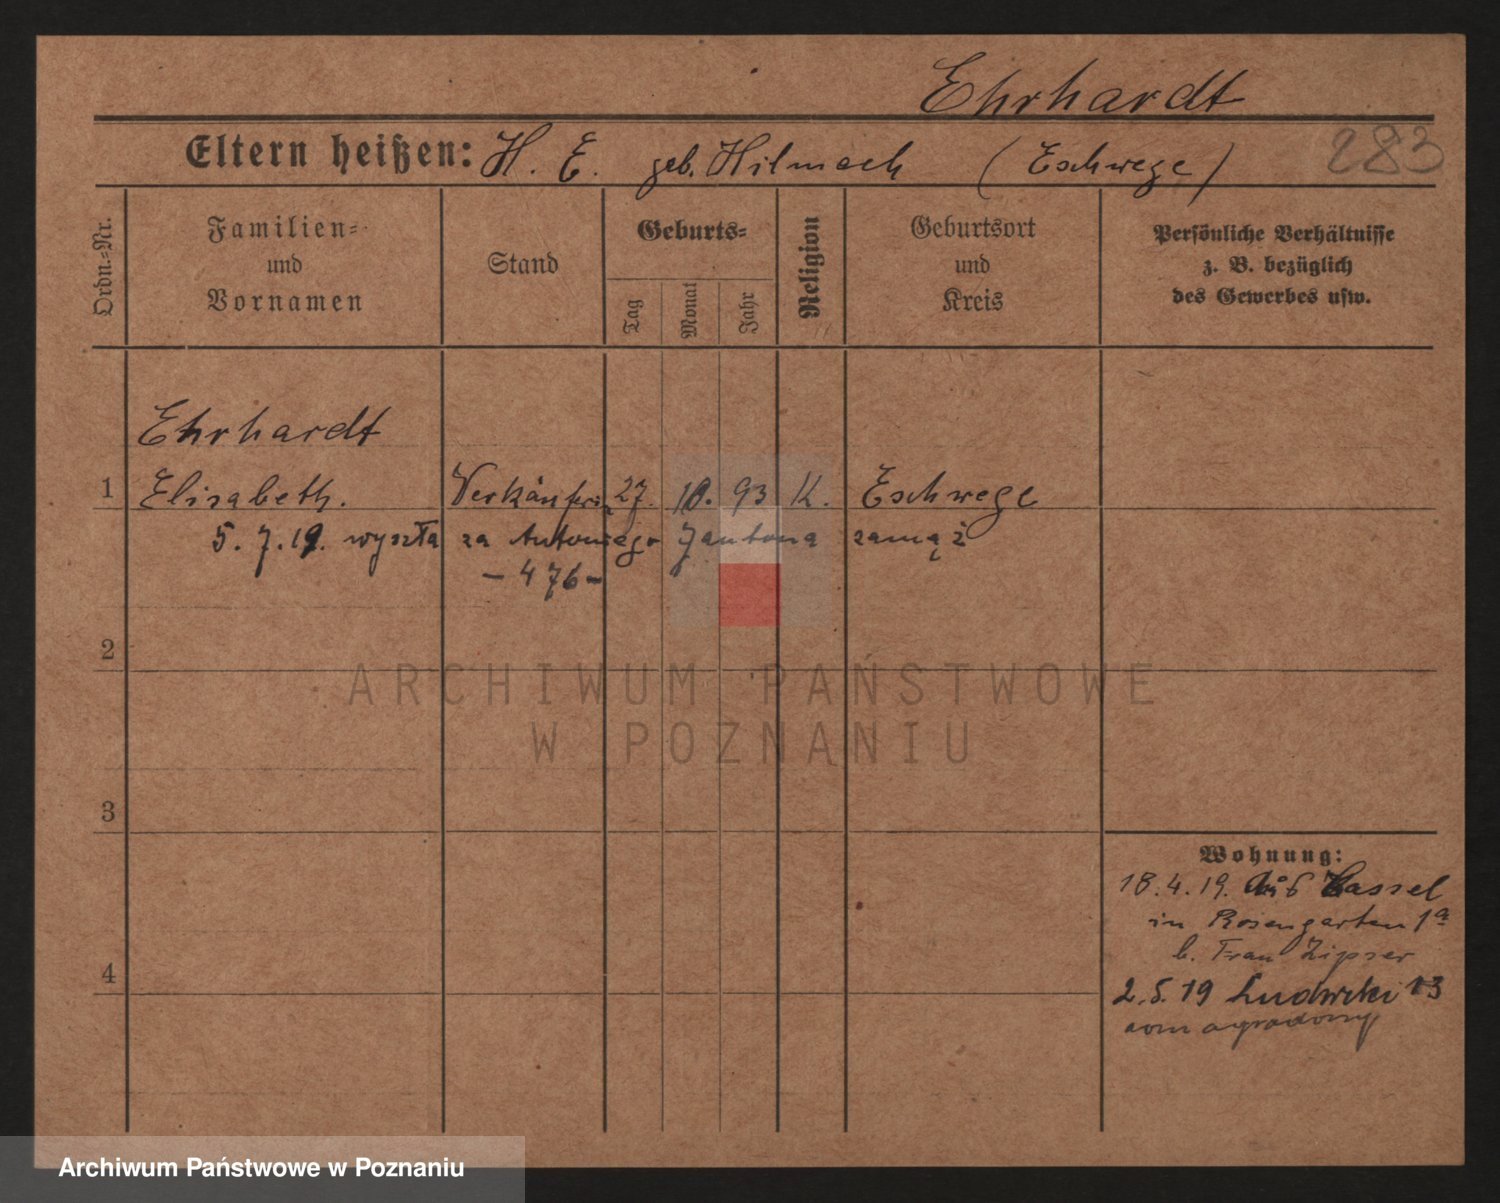 Ehrhardt
Eltern heißen: H. E. geb. Hilmach (Eschwege)
283
Ordn.-Nr.
Familien- und Vornamen
Stand
Geburts-
Tag
Monat
Jahr
Religion
Geburtsort und Kreis
Persönliche Verhältnisse z. B. bezüglich des Gewerbes usw.
Ehrhardt
1 Elisabeth. Verkäuferin 27. 10. 93 K. Eschwege
5. 7. 19. wyszła za Antoniego Jantona zamąż
- 476 -
2
ARCHIWUM PAŃSTWOWE
W POZNANIU
3
Wohnung:
18. 4. 19. aus Cassel
in Rosengarten 1a
b. Frau Zipser
4
2. 5. 19 Ludwiki 13
dom ogrodowy
Archiwum Państwowe w Poznaniu